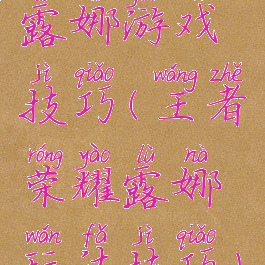 露娜游戏
jì qiǎo wáng zhě
技巧(王者
róng yào lù nà
荣耀露娜
wán fǎ jì qiǎo
玩法技巧)